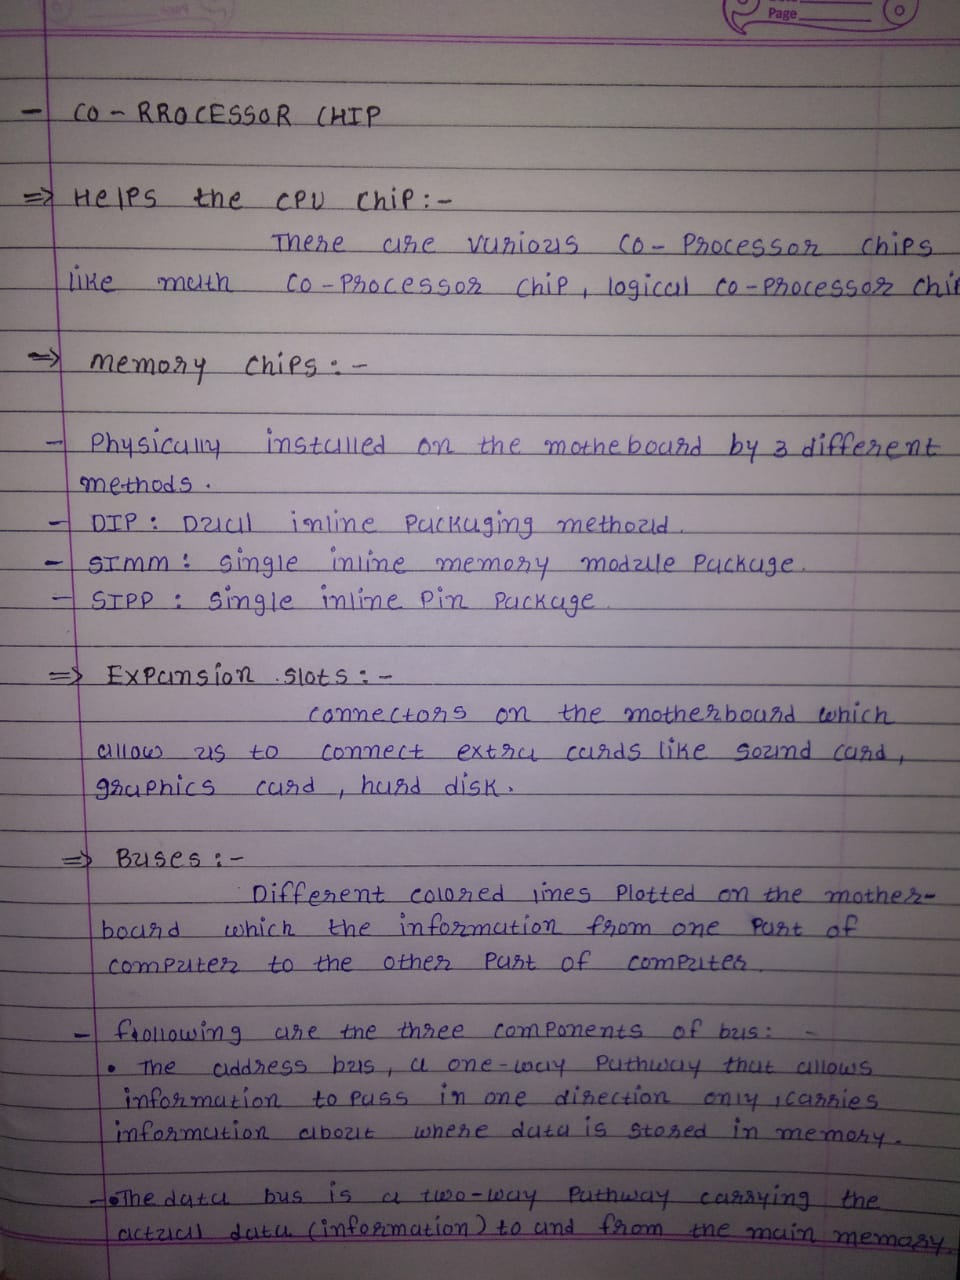 Page
- CO-RROCESSOR CHIP
=> Helps the CPU chip:-
There are various co-processor chips
like math co-processor chip, logical co-processor chip
=> memory chips:-
- Physically installed on the motheboard by 3 different
methods.
- DIP: Dual inline packaging method.
- SIMM: single inline memory module package.
- SIPP: single inline pin package.
=> Expansion slots:-
connectors on the motherboard which
allow us to connect extra cards like sound card,
graphics card, hard disk.
=> Buses:-
Different colored lines plotted on the mother-
board which the information from one part of
computer to the other part of computer.
- following are the three components of bus: -
• The address bus, a one-way pathway that allows
information to pass in one direction only, carries
information about where data is stored in memory.
- •The data bus is a two-way pathway carrying the
actual data (information) to and from the main memory.